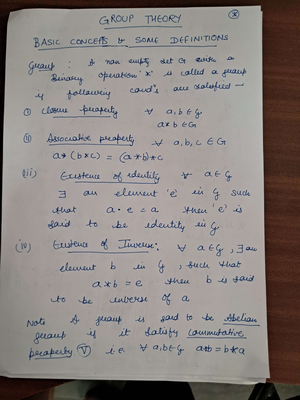 GROUP THEORY
BASIC CONCEPTS & SOME DEFINITIONS
Group : A non empty set G with a
Binary operation '*' is called a group
if following cond's are satisfied —
(i) Closure property ∀ a,b ∈ G
a*b ∈ G
(ii) Associative property ∀ a,b,c ∈ G
a*(b*c) = (a*b)*c
(iii) Existence of identity ∀ a ∈ G
∃ an element 'e' in G such
that a·e = a then 'e' is
said to be identity in G.
(iv) Existence of Inverse: ∀ a ∈ G, ∃ an
element b in G, such that
a*b = e then b is said
to be inverse of a
Note A group is said to be Abelian
group if it satisfy commutative
property (V) i.e ∀ a,b ∈ G a*b = b*a